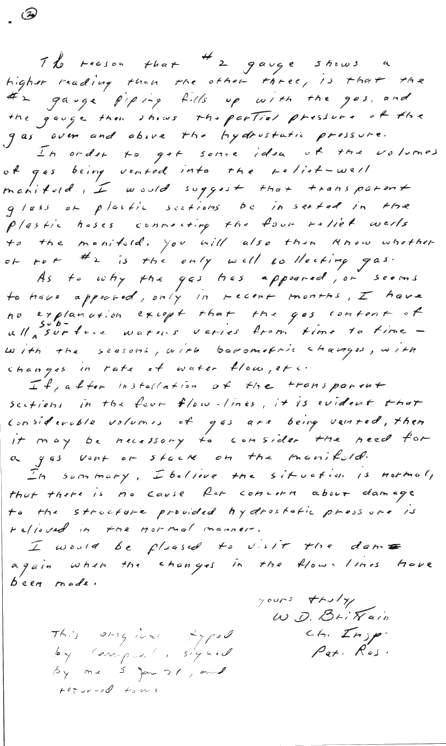 2
The reason that #2 gauge shows a
higher reading than the other three, is that the
#2 gauge piping fills up with the gas, and
the gauge then shows the partial pressure of the
gas over and above the hydrostatic pressure.
In order to get some idea of the volumes
of gas being vented into the relief-well
manifold, I would suggest that transparent
glass or plastic sections be inserted in the
plastic hoses connecting the four relief wells
to the manifold. You will also then know whether
or not #2 is the only well collecting gas.
As to why the gas has appeared, or seems
to have appeared, only in recent months, I have
no explanation except that the gas content of
all sub-surface waters varies from time to time -
with the seasons, with barometric changes, with
changes in rate of water flow, etc.
If, after installation of the transparent
sections in the four flow-lines, it is evident that
considerable volumes of gas are being vented, then
it may be necessary to consider the need for
a gas vent or stack on the manifold.
In summary, I believe the situation is normal,
that there is no cause for concern about damage
to the structure provided hydrostatic pressure is
relieved in the normal manner.
I would be pleased to visit the dam
again when the changes in the flow-lines have
been made.
yours truly,
W D. Brittain
Ch. Insp.
Pet. Res.
This original typed
by signed
by me 5 Jan 71, and
returned